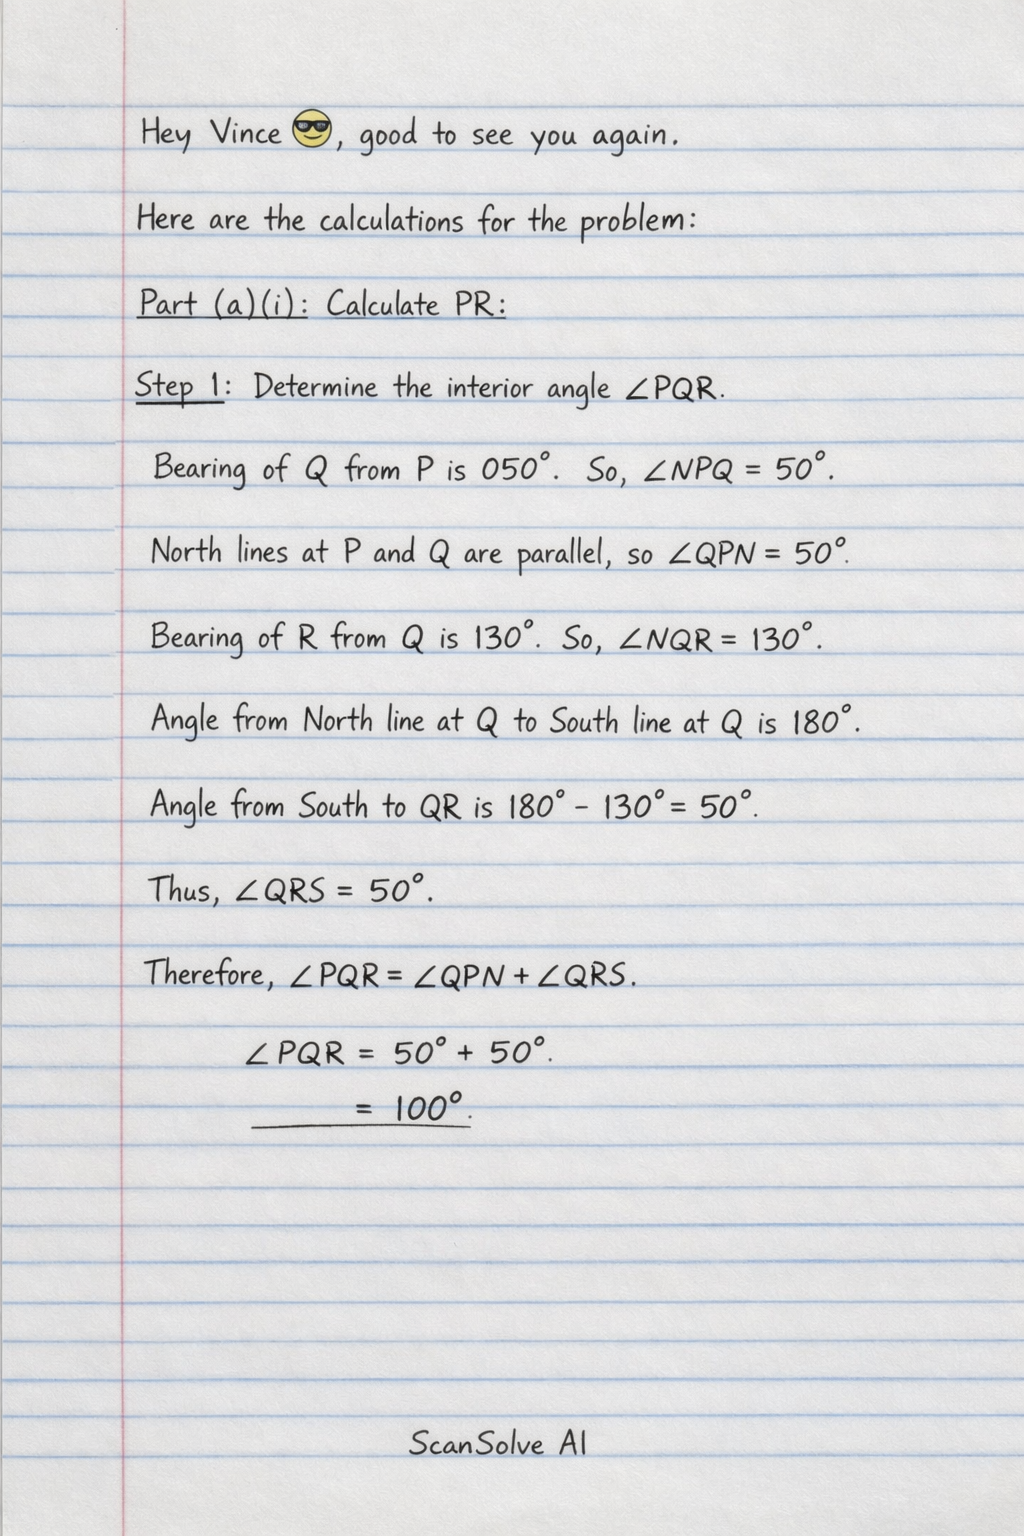 Hey Vince 😎, good to see you again.
Here are the calculations for the problem:
Part (a)(i): Calculate PR:
Step 1: Determine the interior angle ∠PQR.
Bearing of Q from P is 050°. So, ∠NPQ = 50°.
North lines at P and Q are parallel, so ∠QPN = 50°.
Bearing of R from Q is 130°. So, ∠NQR = 130°.
Angle from North line at Q to South line at Q is 180°.
Angle from South to QR is 180° - 130° = 50°.
Thus, ∠QRS = 50°.
Therefore, ∠PQR = ∠QPN + ∠QRS.
∠PQR = 50° + 50°.
= 100°.
ScanSolve AI